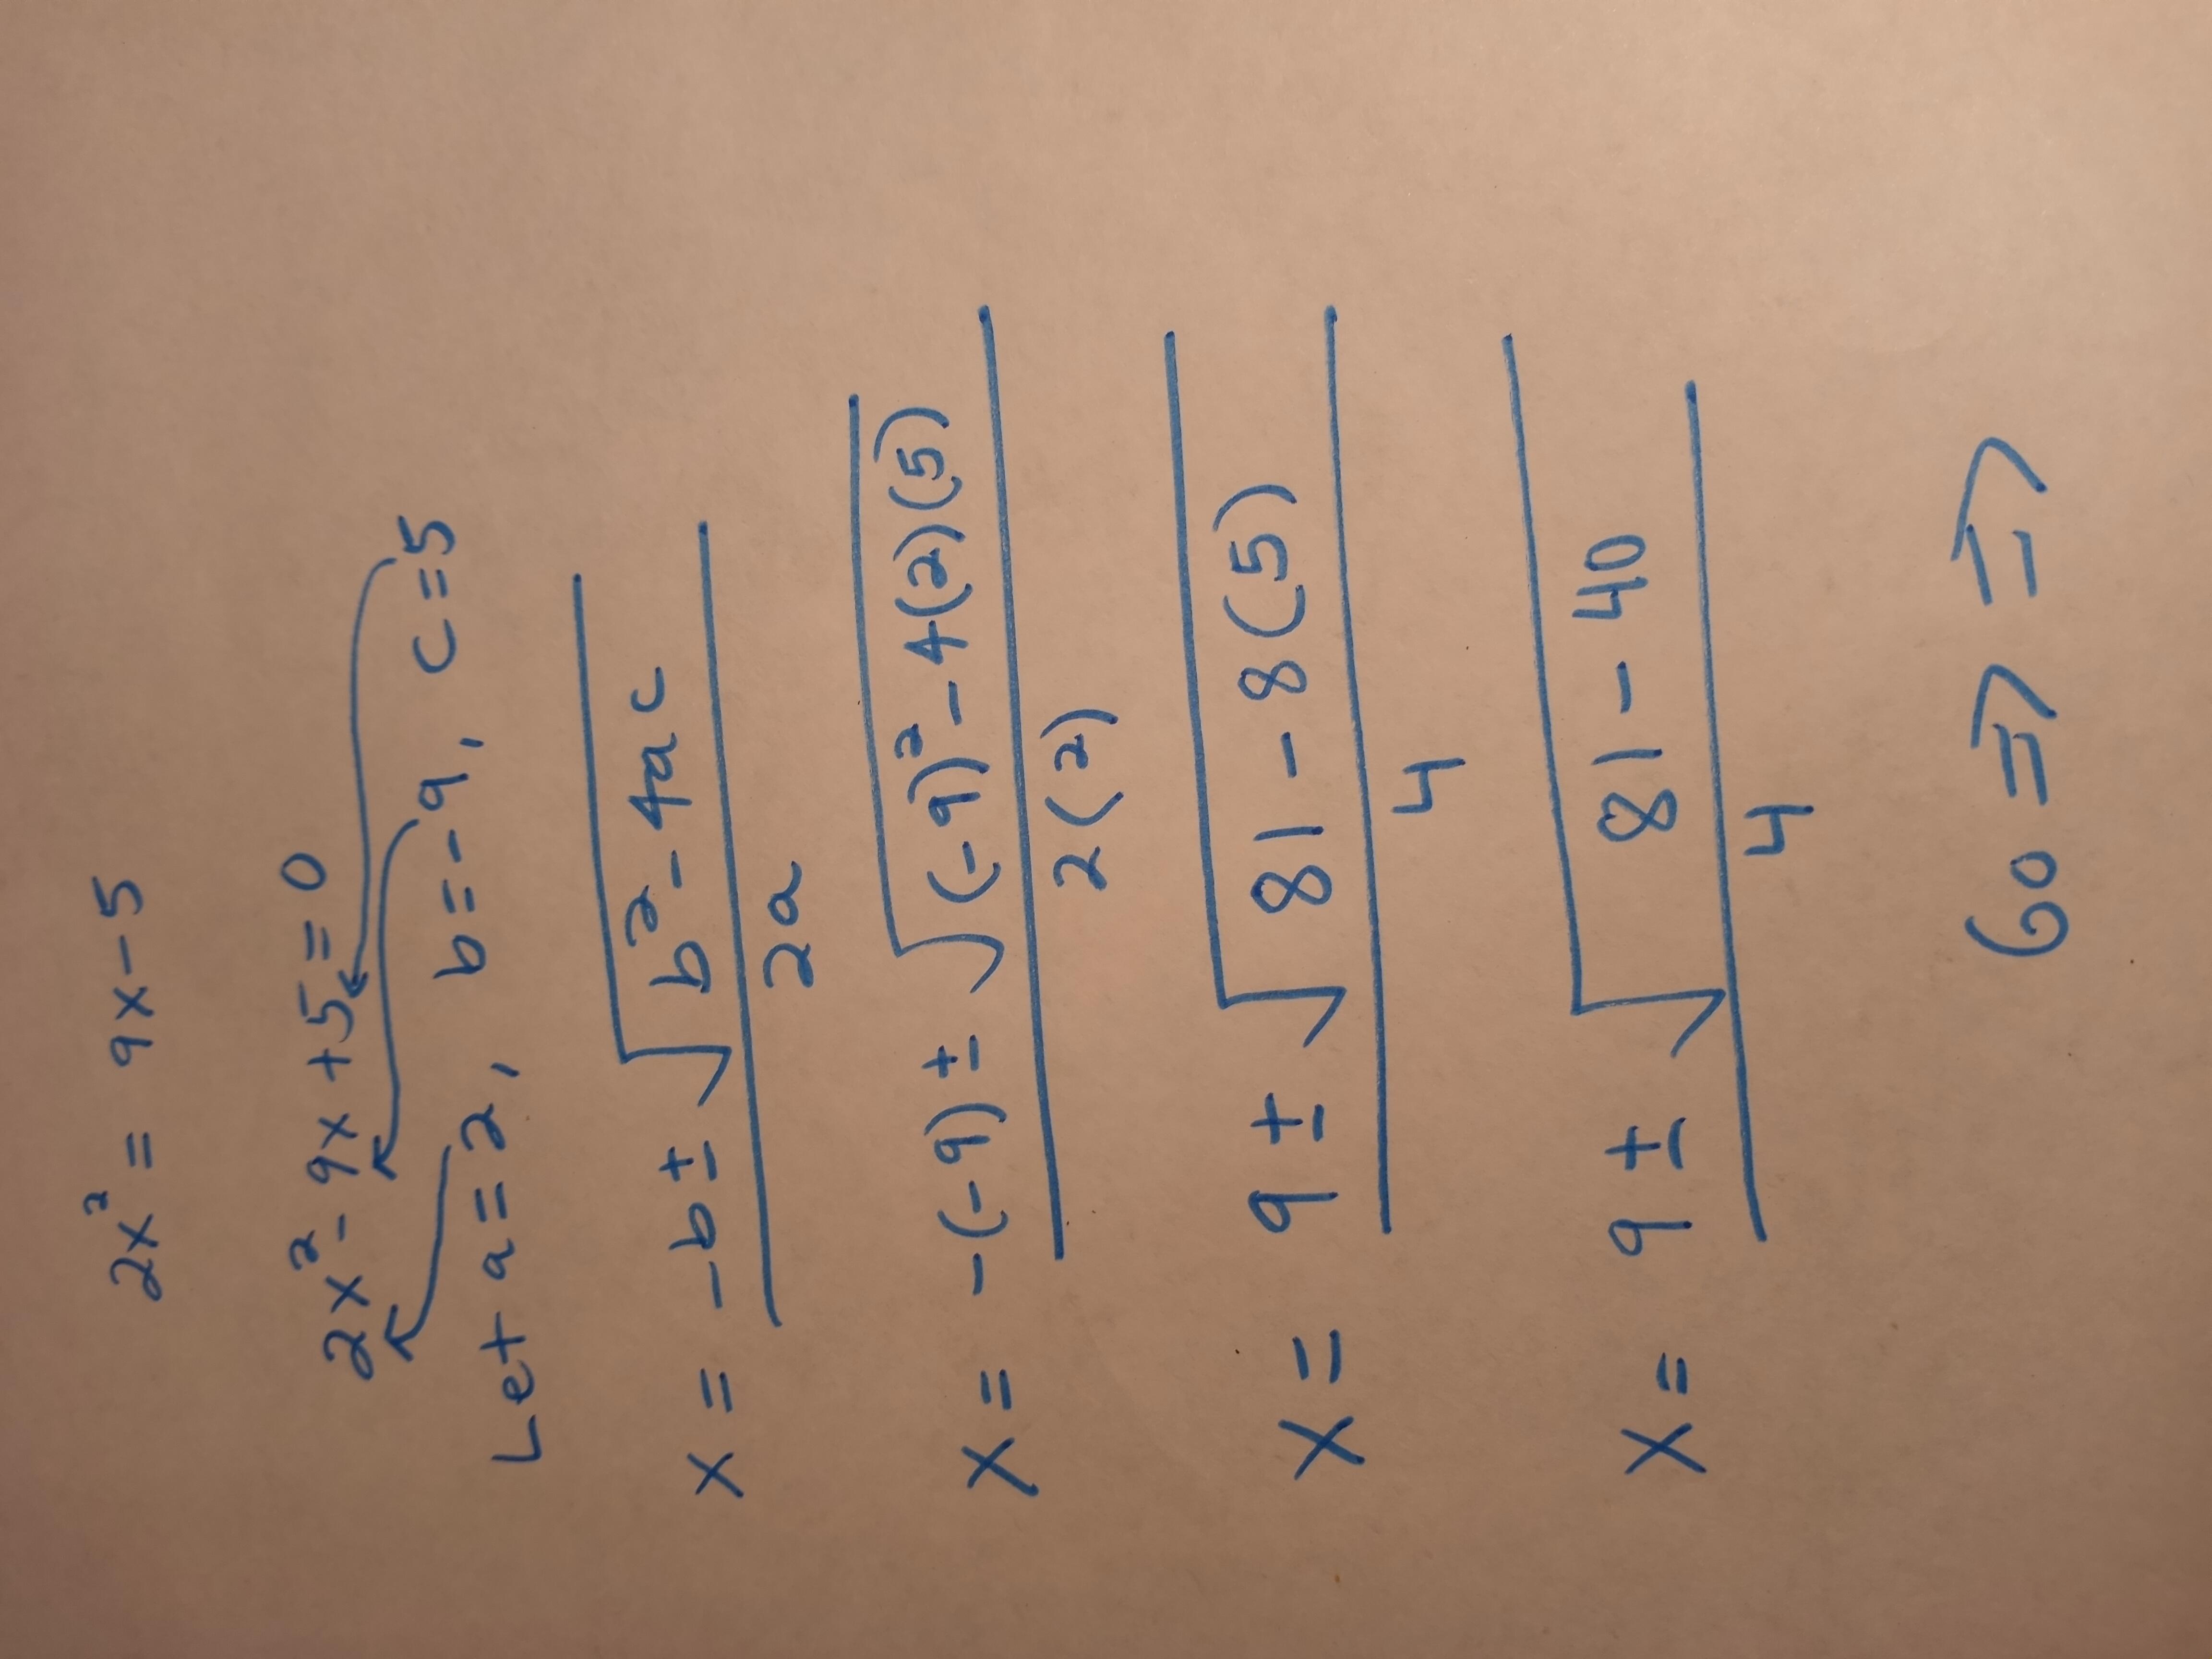 2x² = 9x - 5
2x² - 9x + 5 = 0
Let a = 2, b = -9, c = 5
x = -b ± √(b² - 4ac) / 2a
x = -(-9) ± √((-9)² - 4(2)(5)) / 2(2)
x = 9 ± √(81 - 8(5)) / 4
x = 9 ± √(81 - 40) / 4
Go ⇒ ⇒